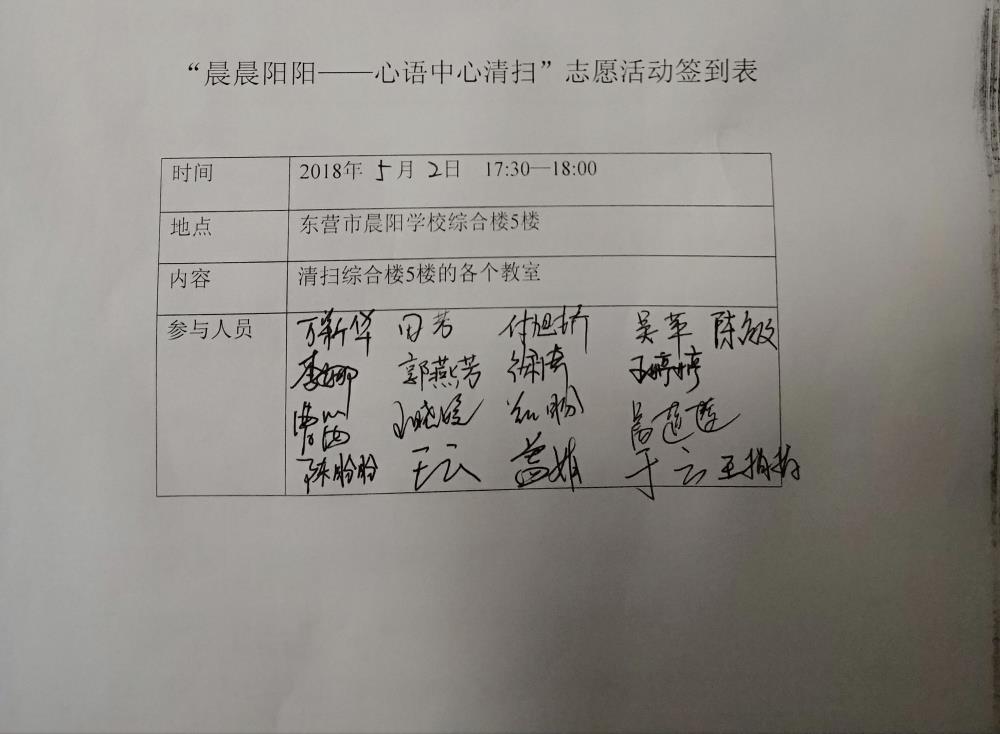 “晨晨阳阳——心语中心清扫”志愿活动签到表
时间 2018年 5 月 2日 17:30—18:00
地点 东营市晨阳学校综合楼5楼
内容 清扫综合楼5楼的各个教室
参与人员 万新华 田芳 付旭娇 吴苹 陈敏
李娜 郭燕芳 王婷婷
王晓晓
陈盼盼 王云 孟娟 于云 王楠楠